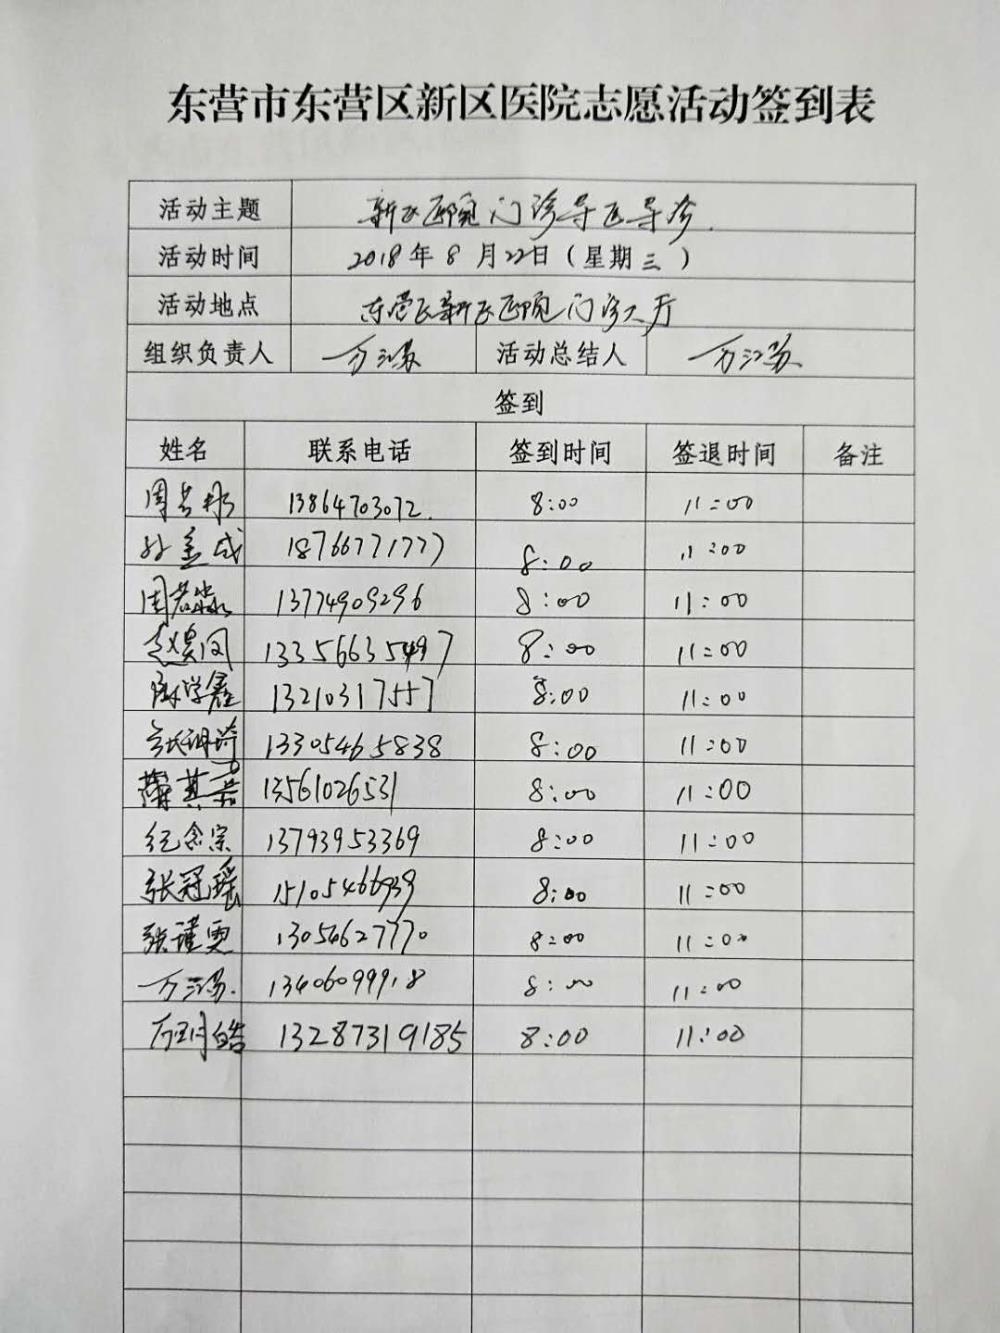 东营市东营区新区医院志愿活动签到表
活动主题 新区医院门诊导医导诊.
活动时间 2018年8月22日（星期三）
活动地点 东营区新区医院门诊大厅
组织负责人 万江荔 活动总结人 万江荔
签到
姓名 联系电话 签到时间 签退时间 备注
13864703072. 8:00 11:00
18766771777 8:00 11:00
周若淼 13774909296 8:00 11:00
赵昊闵 13356635497 8:00 11:00
13210317557 8:00 11:00
13305465838 8:00 11:00
13561026531 8:00 11:00
纪念宗 13793953369 8:00 11:00
张冠瑶 15105466939 8:00 11:00
张瑾雯 13054627770 8:00 11:00
13406099918 8:00 11:00
13287319185 8:00 11:00